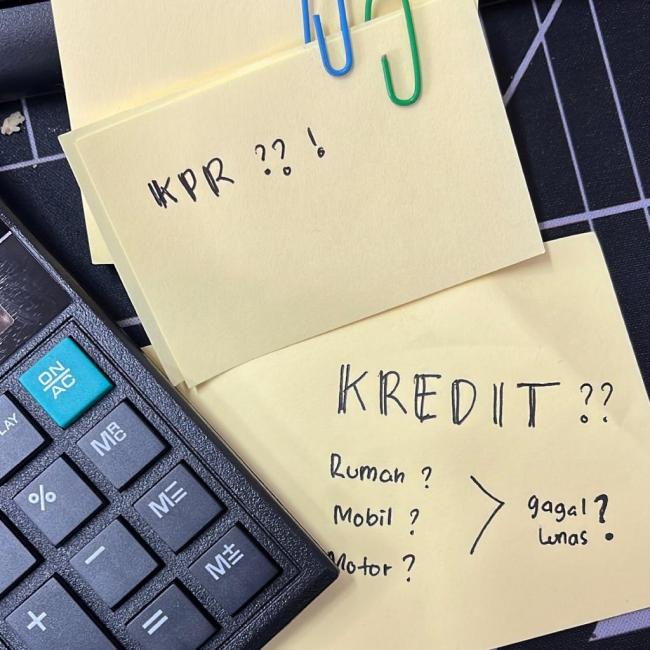 KPR ??!
KREDIT ??
Rumah ?
Mobil ?
Motor ?
gagal?
lunas
ON
AC
LAY
MRC
%
M=
-
M±
+
=